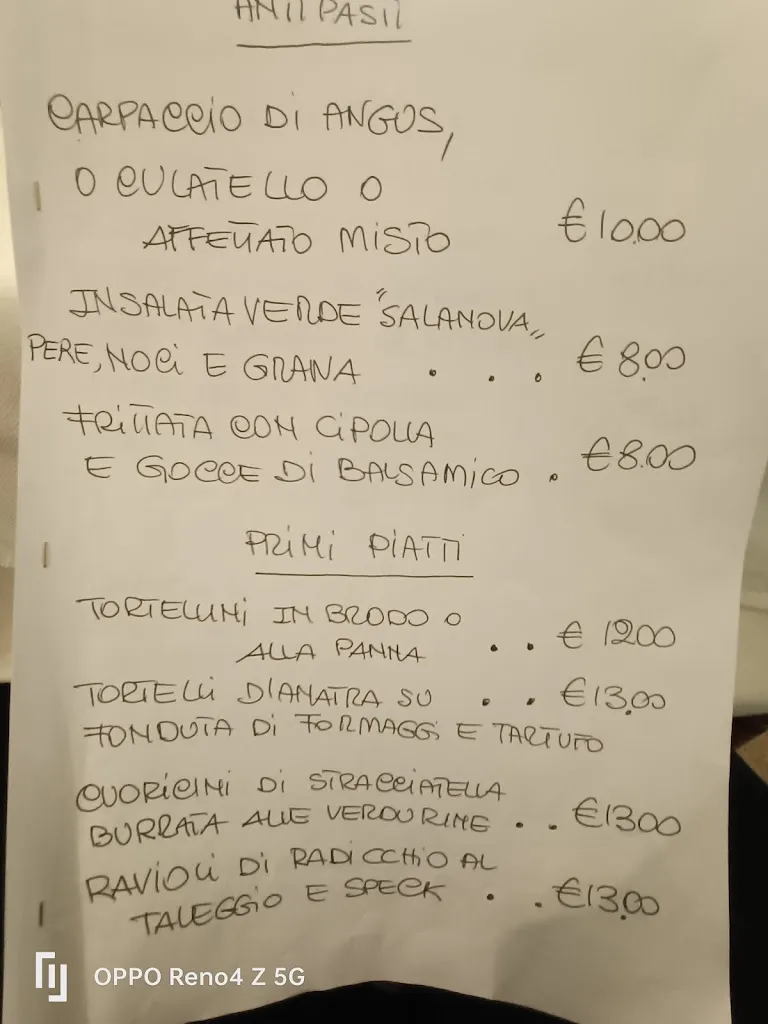 ANTIPASTI
CARPACCIO DI ANGUS,
O CULATELLO O
AFFETTATO MISTO € 10.00
INSALATA VERDE "SALANOVA"
PERE, NOCI E GRANA . . . € 8.00
FRITTATA CON CIPOLLA
E GOCCE DI BALSAMICO . € 8.00
PRIMI PIATTI
TORTELLINI IN BRODO O
ALLA PANNA . . € 12.00
TORTELLI D'ANATRA SU . . € 13.00
FONDUTA DI FORMAGGI E TARTUFO
CUORICINI DI STRACCIATELLA
BURRATA ALLE VERDURINE . . € 13.00
RAVIOLI DI RADICCHIO AL
TALEGGIO E SPECK . . € 13.00
OPPO Reno4 Z 5G